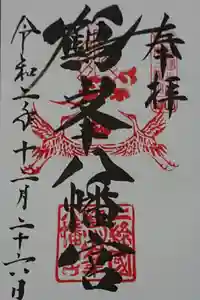 奉拝
鶴峯八幡宮
令和年十月二十六日
八幡宮